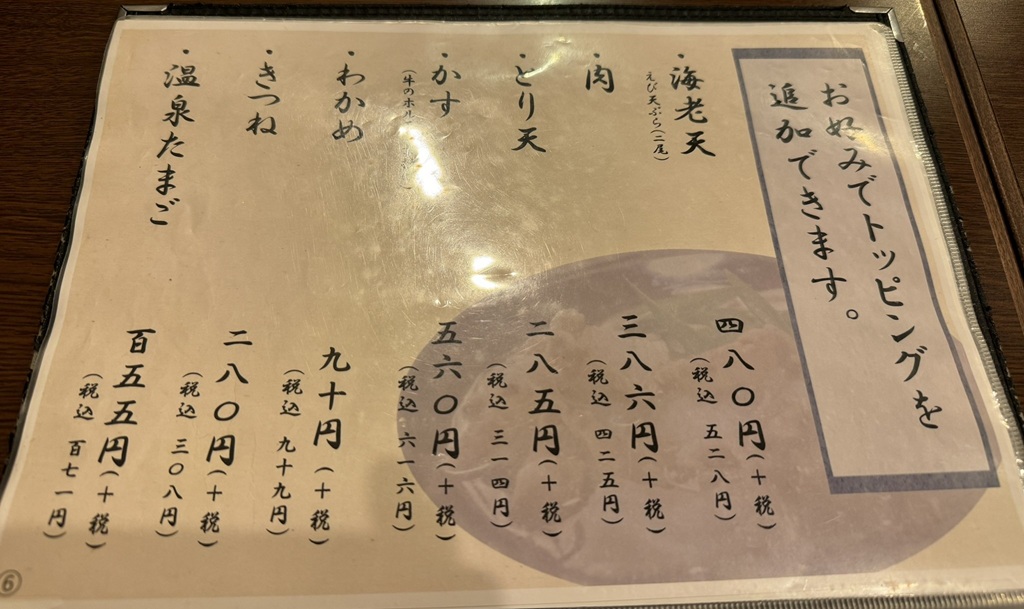 お好みでトッピングを
追加できます。
・海老天
えび天ぷら(二尾)
四八〇円(+税)
(税込 五二八円)
・肉
三八六円(+税)
(税込 四二五円)
・とり天
二八五円(+税)
(税込 三一四円)
・かす
(牛のホル
五六〇円(+税)
(税込 六一六円)
・わかめ
九十円(+税)
(税込 九十九円)
・きつね
二八〇円(+税)
(税込 三〇八円)
・温泉たまご
百五五円(+税)
(税込 百七一円)
⑥